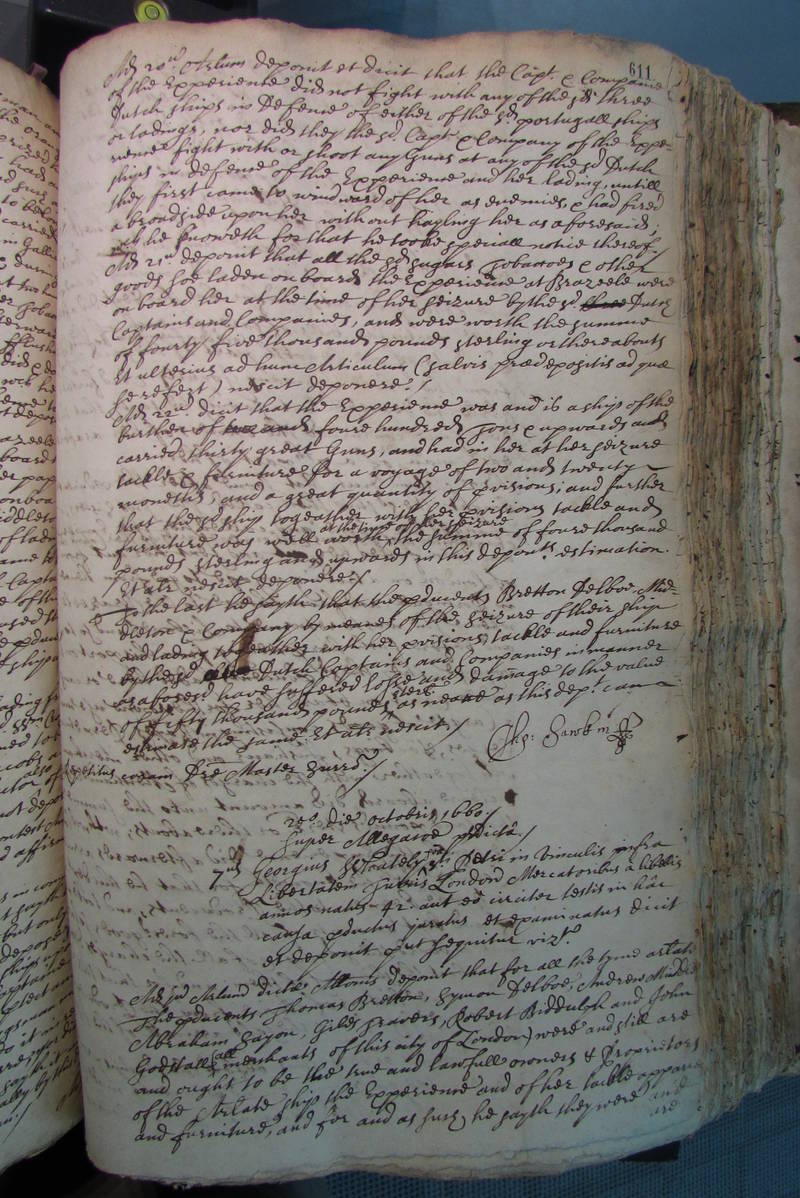 611
Ad 20um Arlum deponit et dicit that the Capt. & Companie
of the Experience did not fight with any of the sd three
Dutch ships in defence of either of the sd portugall ships
or ladings, nor did they the sd Capt & Company of the Expe-
rience fight with or shoot any Guns at any of the sd Dutch
ships in defence of the Experience and her lading, untill
they first came to windward of her as enemies, & had fired
a broadside upon her without hayling her as aforesaid;
wch he knoweth for that he tooke speciall notice thereof./
Ad 21um deponit that all the sd sugars Tobaccoes & other
goods soe laden on board the Experience at Brazeele were
on board her at the time of her seizure by the sd Dutch
Captains and Companies, and were worth the summe
of fourty five thousand pounds sterling or thereabouts
Et ulterius ad hunc Articulum (salvis prædepositis ad quæ
se refert) nescit deponere./
Ad 22um dicit that the Experience was and is a ship of the
burthen of foure hundred Tons & upwards and
carried thirty great Guns, and had in her at her seizure
tackle & furniture for a voyage of two and twenty
moneths, and a great quantity of pvisions; and further
that the sd ship togeather with her pvisions tackle and
furniture was well worth at the time of her seizure the summe of foure thousand
pounds sterling and upwards in this deponts. estimation.
Et alr nescit deponere./
To the last he sayth that the pducents Bretton Delboe, Mid-
dleton & Company by meanes of the seizure of their ship
and lading togeather with her pvisions, tackle and furniture
by the sd Dutch Captains and Companies in manner
as aforesd have suffered losse and damage to the value
of fifty thousand pounds sterl. as neare as this dept. can
estimate the same. Et alr nescit./
Chr: Hawkins
Repetitus coram Dre Master Surro./
20o die octobris 1660./
Super Allegacoe pdicta./
7us Georgius Whately Sti Petri in Vinculis infra
Libertatem Turris London Mercatoribus a libellis
annos natus 42 aut eo circiter testis in hac
causa pductus juratus et examinatus dicit
et deponit put sequitur vizt.
Ad jum Arlum dictæ Allonis deponit that for all the tyme arlate
The pducents Thomas Bretton, Symon Delboe, Andrew Middleton
Abraham Sayon, Giles Travers, Robert Biddulph and John
Godschall all merchants of this city of London) were and still are
and ought to be the true and lawfull owners & Proprietors
of the Arlate ship the Experience and of her tackle apparell
and furniture, and for and as such he sayth they were and
are